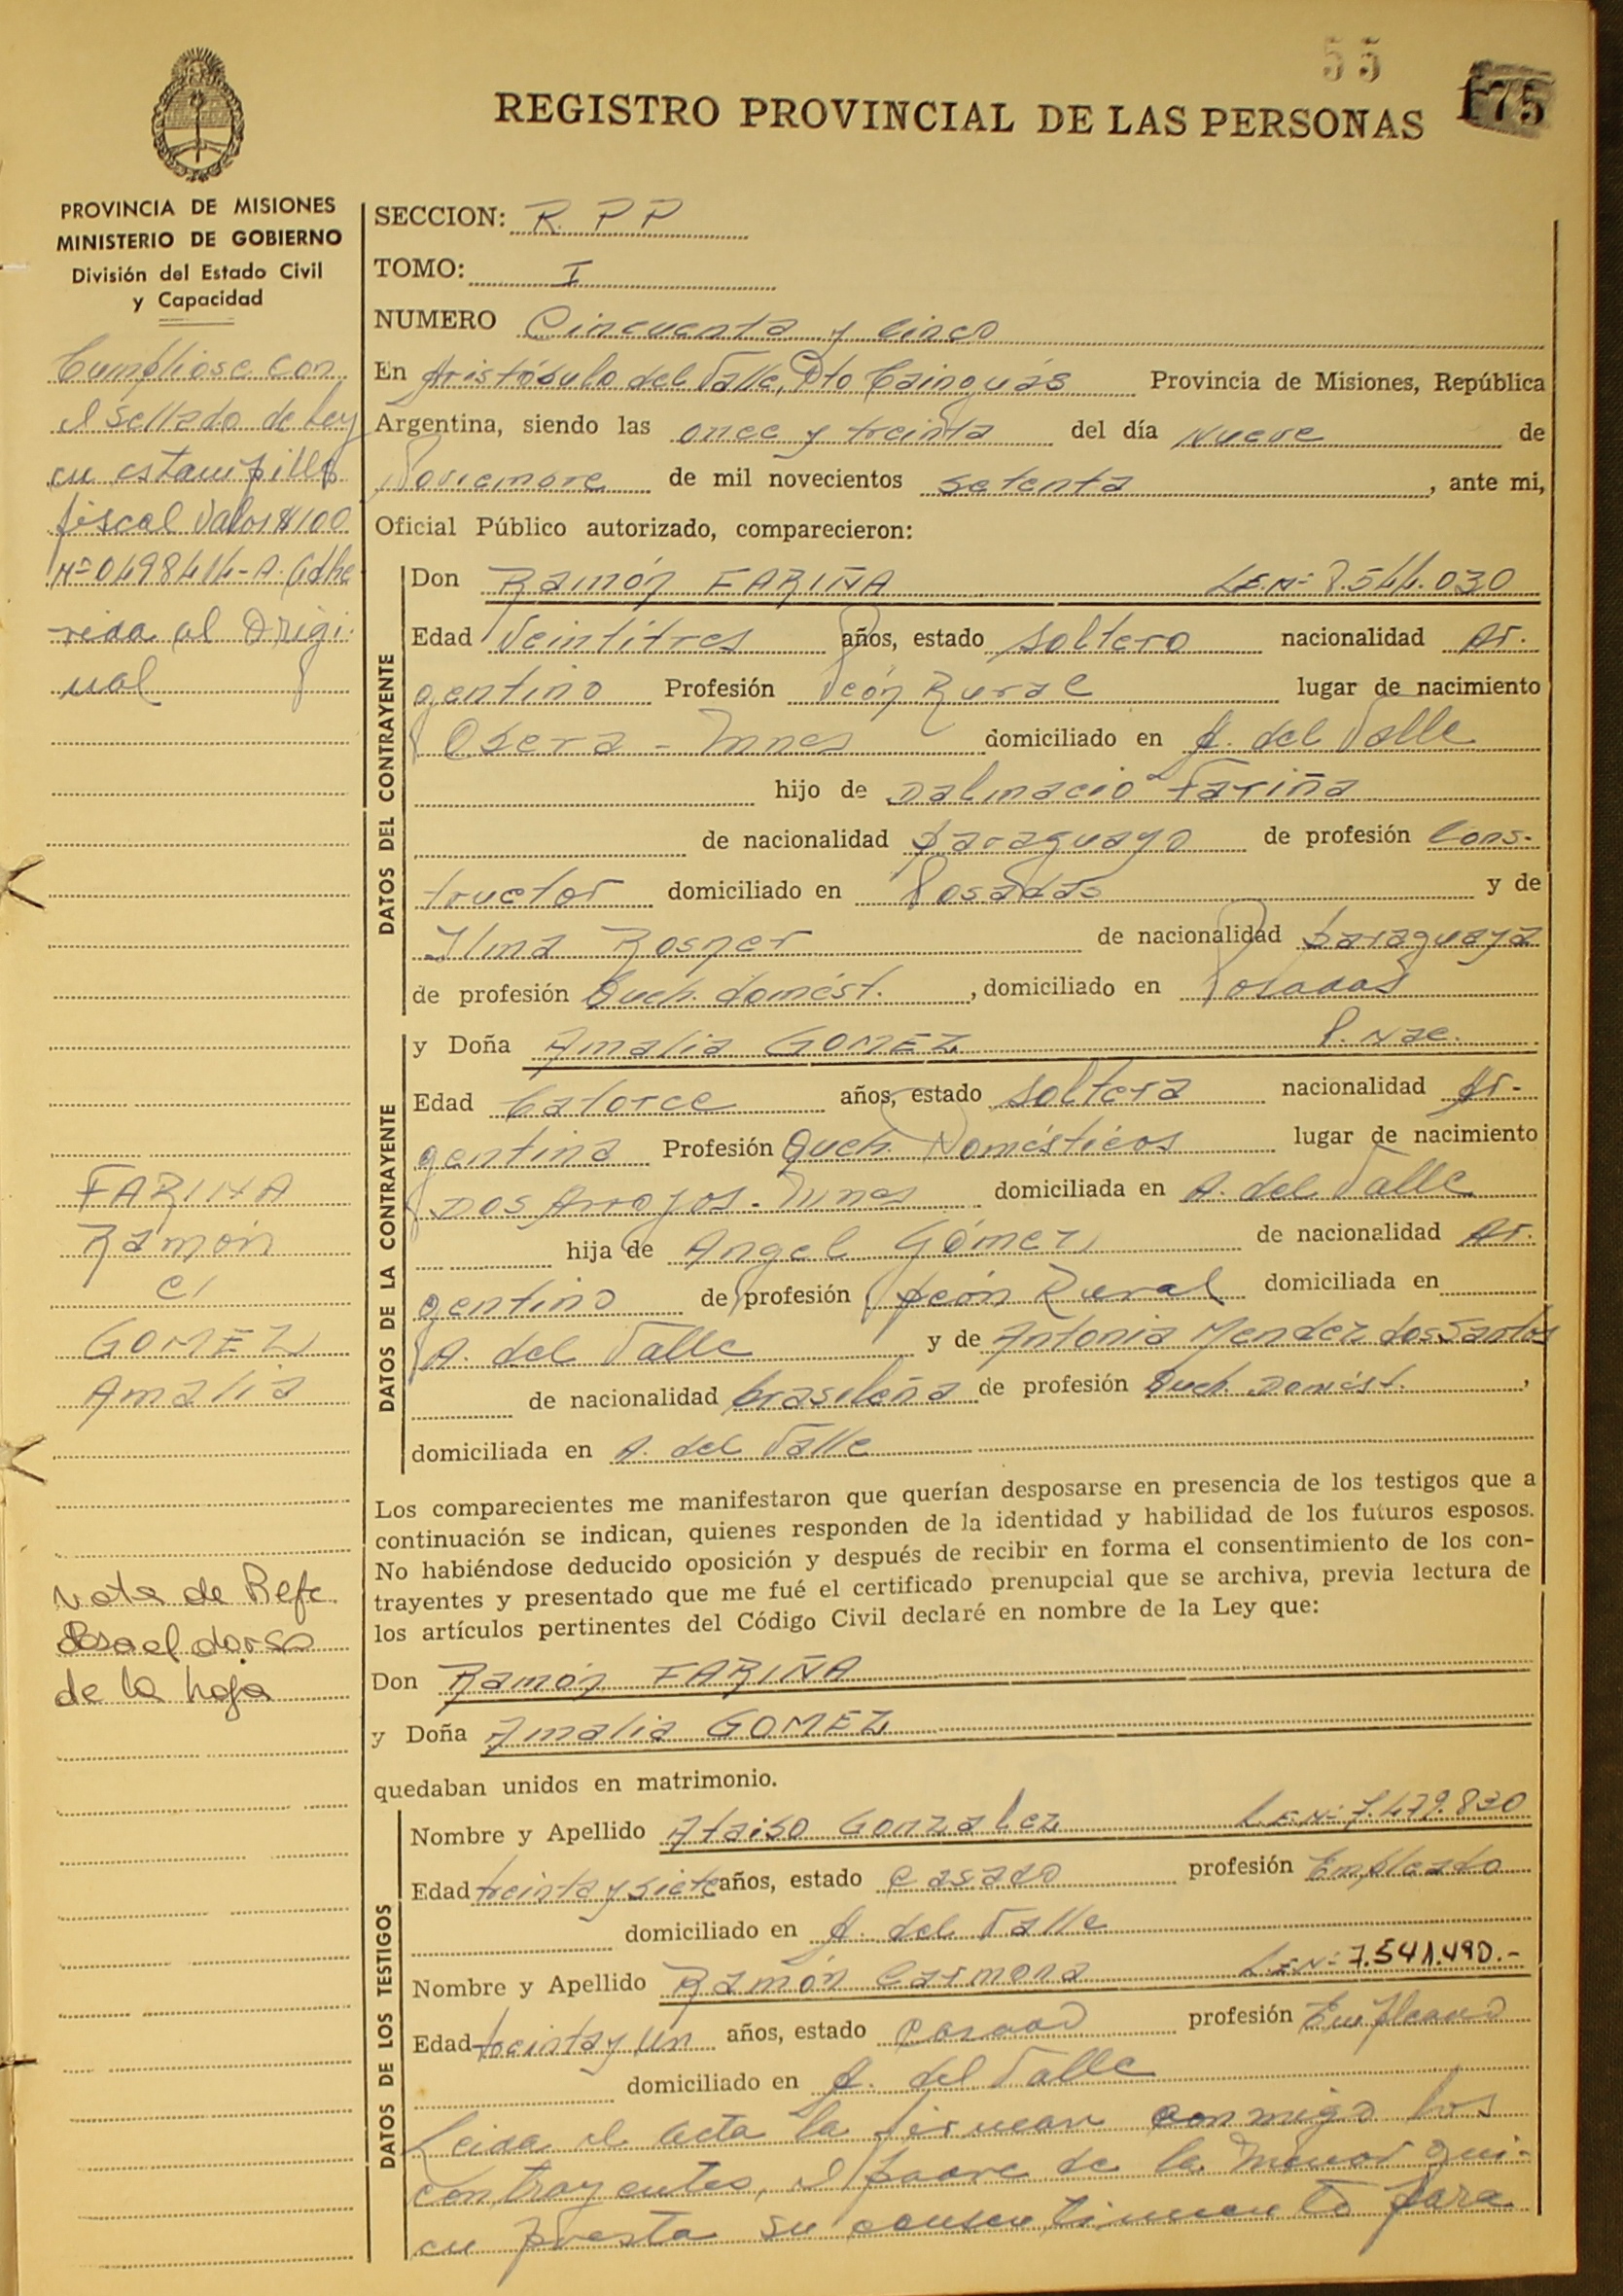 55
175
REGISTRO PROVINCIAL DE LAS PERSONAS
PROVINCIA DE MISIONES
MINISTERIO DE GOBIERNO
División del Estado Civil
y Capacidad
Cumpliose con
el sellado de Ley
en estampilla
fiscal valor $100
Nº 0498414-A. Adhe
rida al Origi-
nal
FARIÑA
Ramón
c/
GOMEZ
Amalia
Nota de Refe.
al dorso
de la hoja
SECCION: R. P P
TOMO: I
NUMERO Cincuenta y cinco
En Aristóbulo del Valle, Dto Cainguás Provincia de Misiones, República
Argentina, siendo las once y treinta del día Nueve de
Noviembre de mil novecientos setenta, ante mi,
Oficial Público autorizado, comparecieron:
DATOS DEL CONTRAYENTE
Don Ramón FARIÑA L.E.Nº 8.544.030
Edad Veintitres años, estado soltero nacionalidad Ar-
gentino Profesión Peón Rural lugar de nacimiento
Obera - Mnes domiciliado en A. del Valle
hijo de Dalmacio Fariña
de nacionalidad paraguayo de profesión Cons-
tructor domiciliado en Posadas y de
Ilma Rosner de nacionalidad paraguaya
de profesión Queh. domést., domiciliado en Posadas
DATOS DE LA CONTRAYENTE
y Doña Amalia GOMEZ P. Nac.
Edad Catorce años, estado soltera nacionalidad Ar-
gentina Profesión Queh. Domésticos lugar de nacimiento
Dos Arroyos. Mnes domiciliada en A. del Valle
hija de Angel Gómez de nacionalidad Ar.
gentino de profesión peón Rural domiciliada en
A. del Valle y de Antonia Mendez dos Santos
de nacionalidad brasileña de profesión Queh. Domést.,
domiciliada en A. del Valle
Los comparecientes me manifestaron que querían desposarse en presencia de los testigos que a
continuación se indican, quienes responden de la identidad y habilidad de los futuros esposos.
No habiéndose deducido oposición y después de recibir en forma el consentimiento de los con-
trayentes y presentado que me fué el certificado prenupcial que se archiva, previa lectura de
los artículos pertinentes del Código Civil declaré en nombre de la Ley que:
Don Ramón FARIÑA
y Doña Amalia GOMEZ
quedaban unidos en matrimonio.
DATOS DE LOS TESTIGOS
Nombre y Apellido Gonzalez L.E.Nº 7.479.830
Edad treinta y siete años, estado casado profesión Empleado
domiciliado en A. del Valle
Nombre y Apellido Ramón Carmona L.E.Nº 7.541.490.-
Edad treinta y un años, estado casado profesión Empleado
domiciliado en A. del Valle
Leida el acta la firman conmigo los
contrayentes, el padre de la menor qui-
en presta su consentimiento para